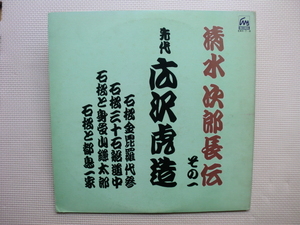 清水次郎長伝
その一
先代
広沢虎造
石松金毘羅代参
石松三十石船道中
石松と身受山鎌太郎
石松と都鳥一家